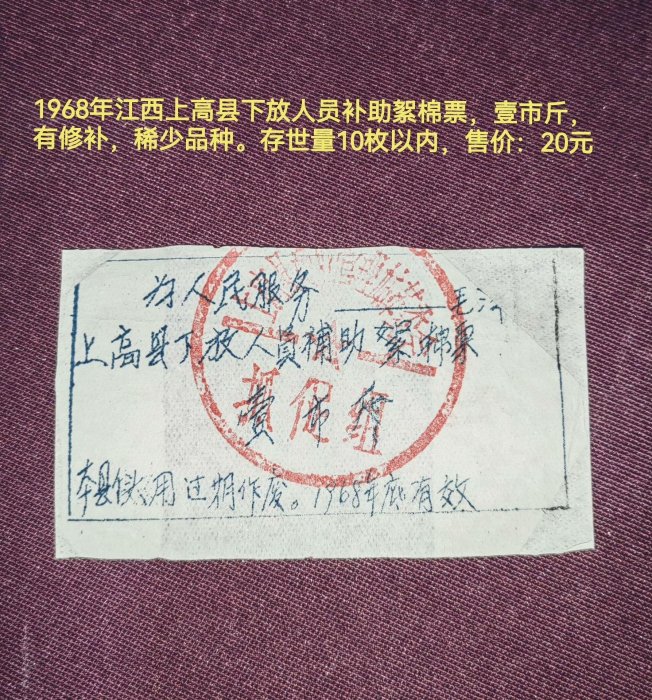 1968年江西上高县下放人员补助絮棉票，壹市斤，
有修补，稀少品种。存世量10枚以内，售价：20元
为人民服务 ——毛
上高县下放人员補助絮棉票
壹市斤
本县使用过期作废。1968年底有效